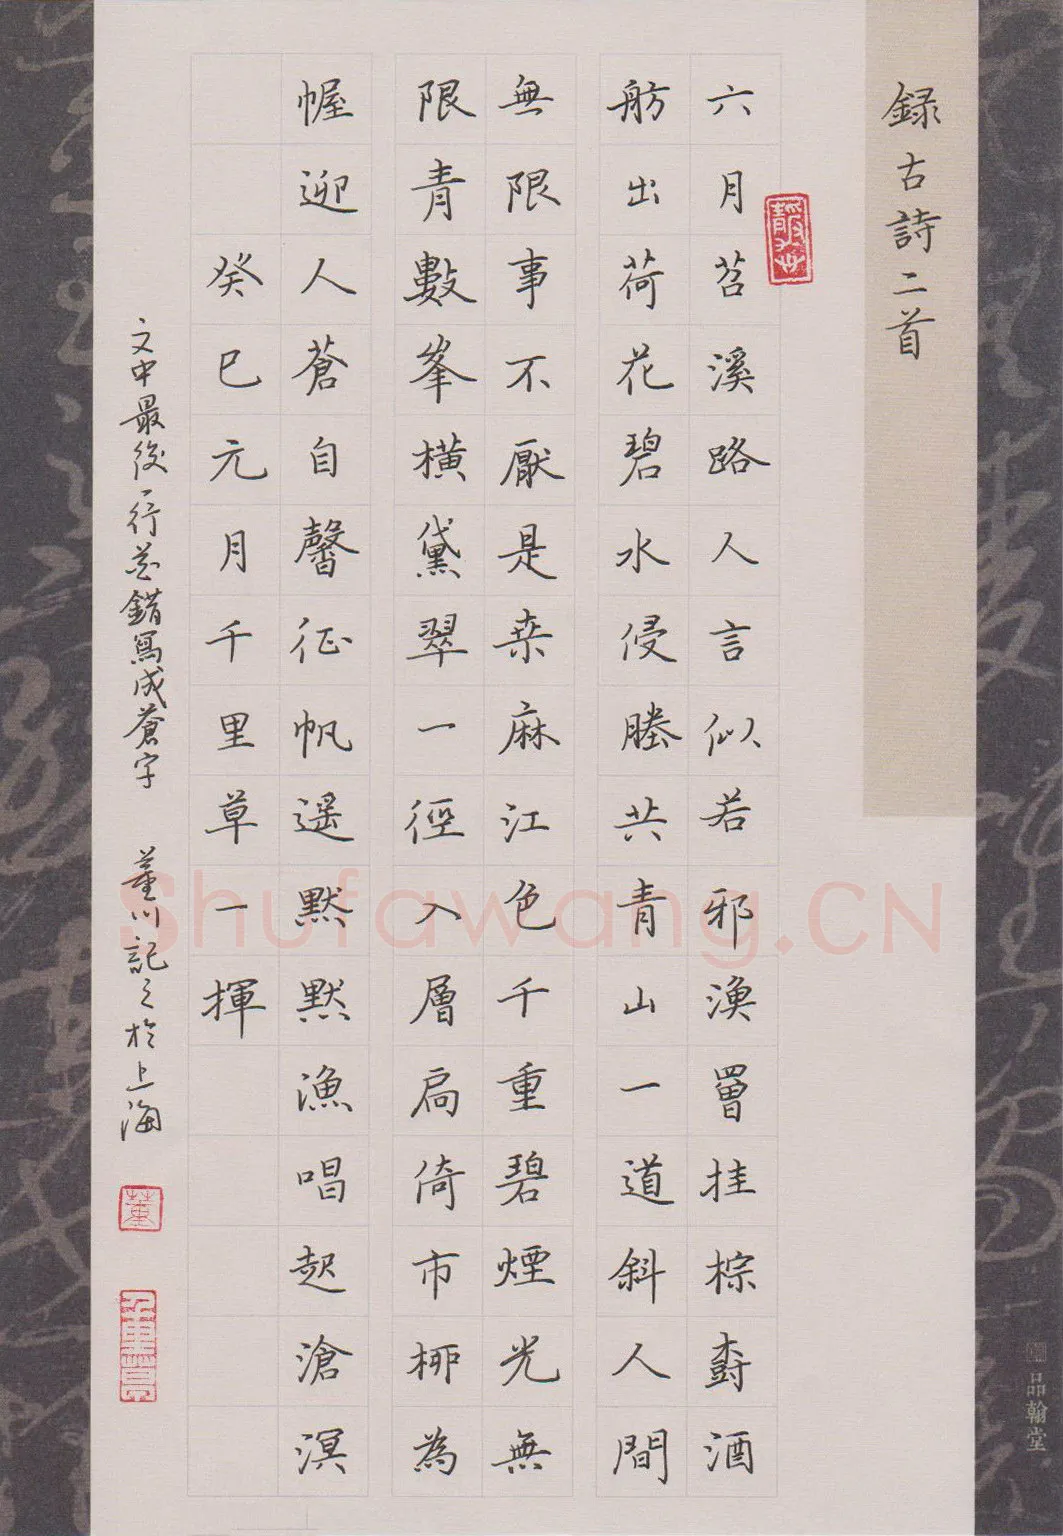 録古詩二首
六月苕溪路人言似若邪漁罾挂棕壽酒
舫出荷花碧水侵塍共青山一道斜人間
無限事不厭是桒麻江色千重碧煙光無
限青數峯橫黛翠一徑入層扃倚市椰為
幄迎人蒼自馨征帆遥默默漁唱起滄溟
癸巳元月千里草一揮
文中最後一行花錯寫成蒼字 董川記之於上海
品翰堂
Shufawang.CN